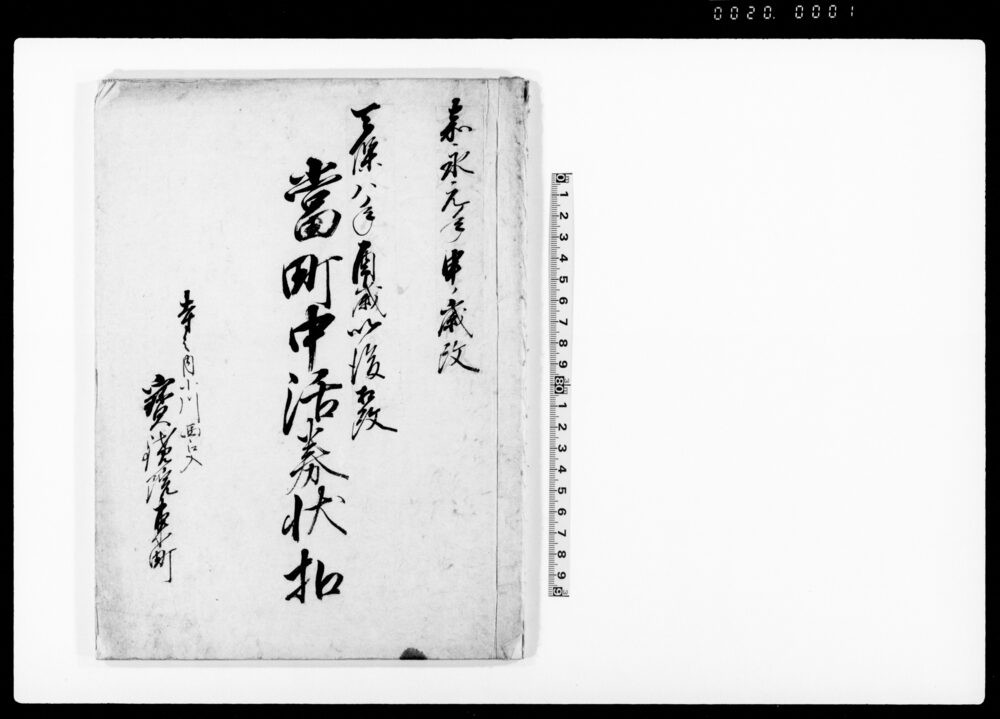 0020. 0001
嘉永元年申ノ歳改
天保八年酉歳以後改
當町中活券状扣
寺之内小川西江入
寶鏡院東町
0 1 2 3 4 5 6 7 8 9 80 1 2 3 4 5 6 7 8 9